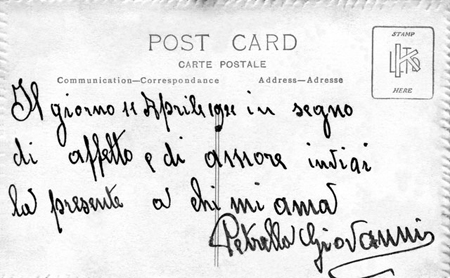 POST CARD
CARTE POSTALE
Communication—Correspondance
Address—Adresse
STAMP
HERE
Il giorno 11 Aprile 1921 in segno
di affetto e di amore inviai
la presente a chi mi ama
Petrella Giovanni